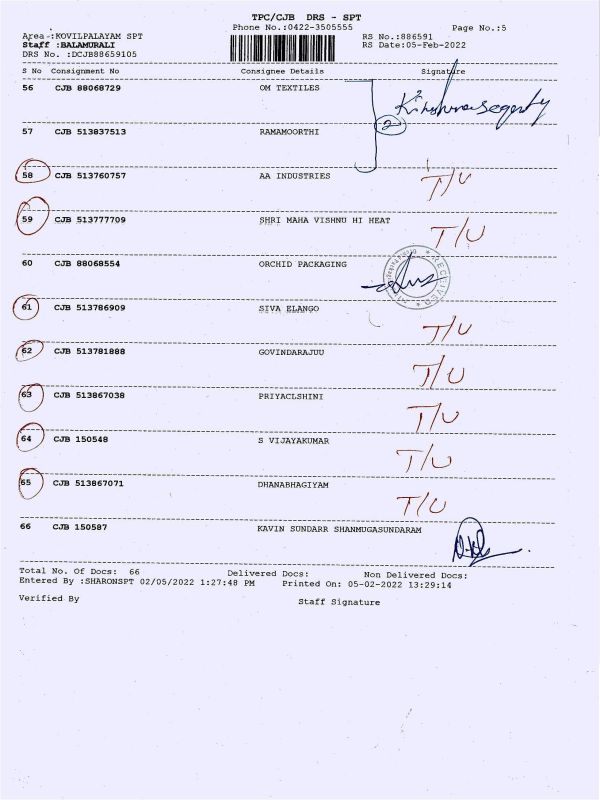 TPC/CJB DRS - SPT
Phone No.:0422-3505555 Page No.:5
Area -:KOVILPALAYAM SPT RS No.:886591
Staff :BALAMURALI RS Date:05-Feb-2022
DRS No. :DCJB88659105
S No Consignment No Consignee Details Signature
56 CJB 88068729 OM TEXTILES
2
57 CJB 513837513 RAMAMOORTHI
58 CJB 513760757 AA INDUSTRIES T/U
59 CJB 513777709 SHRI MAHA VISHNU HI HEAT T/U
60 CJB 88068554 ORCHID PACKAGING
RECEIVED
61 CJB 513786909 SIVA ELANGO T/U
62 CJB 513781888 GOVINDARAJUU T/U
63 CJB 513867038 PRIYACLSHINI T/U
64 CJB 150548 S VIJAYAKUMAR T/U
65 CJB 513867071 DHANABHAGIYAM T/U
66 CJB 150587 KAVIN SUNDARR SHANMUGASUNDARAM
Total No. Of Docs: 66 Delivered Docs: Non Delivered Docs:
Entered By :SHARONSPT 02/05/2022 1:27:48 PM Printed On: 05-02-2022 13:29:14
Verified By Staff Signature